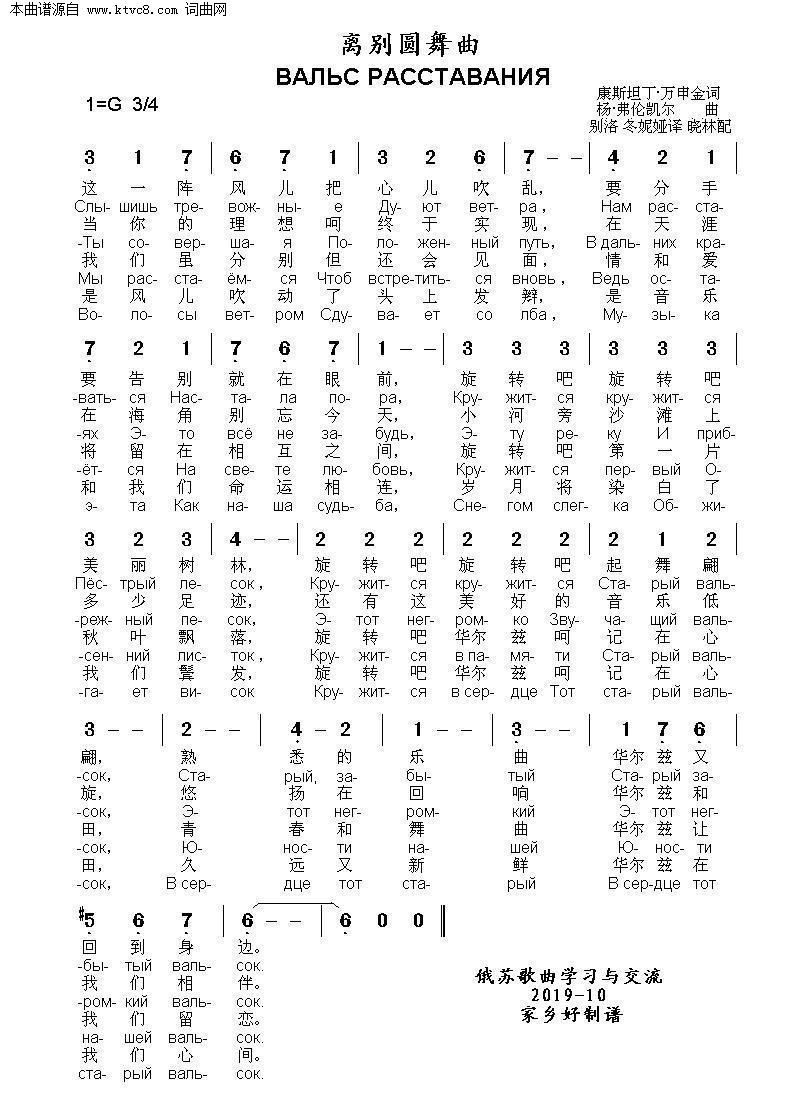 本曲谱源自 www.ktvc8.com 词曲网
离别圆舞曲
ВАЛЬС РАССТАВАНИЯ
1=G 3/4
康斯坦丁·万申金词
杨·弗伦凯尔 曲
别洛 冬妮娅译 晓林配
3 1 7 | 6 7 1 | 3 2 6 | 7 - - | 4 2 1
这 一 阵 风 儿 把 心 儿 吹 乱, 要 分 手
Слы- шишь тре- вож- ны- е Ду- ют вет- ра, Нам рас- ста-
当 你 的 理 想 呵 终 于 实 现, 在 天 涯
-Ты со- вер- ша- я По- ло- жен- ный путь, В даль- них кра-
我 们 虽 分 别 但 还 会 见 面, 情 和 爱
Мы рас- ста- ём- ся Чтоб встре- тить- ся вновь, Ведь ос- та-
是 风 儿 吹 动 了 头 上 发 辫, 是 音 乐
Во- ло- сы вет- ром Сду- ва- ет со лба, Му- зы- ка
7 2 1 | 7 6 7 | 1 - - | 3 3 3 | 3 3 3
要 告 别 就 在 眼 前, 旋 转 吧 旋 转 吧
-вать- ся Нас- та- ла по- ра, Кру- жит- ся кру- жит- ся
在 海 角 别 忘 今 天, 小 河 旁 沙 滩 上
-ях Э- то всё не за- будь, Э- ту ре- ку И приб-
将 留 在 相 互 之 间, 旋 转 吧 第 一 片
-ёт- ся На све- те лю- бовь, Кру- жит- ся пер- вый О-
和 我 们 命 运 相 连, 岁 月 将 染 白 了
э- та Как на- ша судь- ба, Сне- гом слег- ка Об- жи-
3 2 3 | 4 - - | 2 2 2 | 2 2 2 | 2 1 2
美 丽 树 林, 旋 转 吧 旋 转 吧 起 舞 翩
Пёс- трый ле- сок, Кру- жит- ся кру- жит- ся Ста- рый валь-
多 少 足 迹, 还 有 这 美 好 的 音 乐 低
-реж- ный пе- сок, Э- тот нег- ром- ко Зву- ча- щий валь-
秋 叶 飘 落, 旋 转 吧 华 尔 兹 呵 记 在 心
-сен- ний лис- ток, Кру- жит- ся в па- мя- ти Ста- рый валь-
我 们 鬓 发, 旋 转 吧 华 尔 兹 呵 记 在 心
-га- ет ви- сок Кру- жит- ся в сер- дце Тот ста- рый валь-
3 - - | 2 - - | 4 - 2 | 1 - - | 3 - - | 1 7 6
翩, 熟 悉 的 乐 曲 华尔 兹 又
-сок, Ста- рый, за- бы- тый Ста- рый за-
旋, 悠 扬 在 回 响 华尔 兹 和
-сок, Э- тот нег- ром- кий Э- тот нег-
田, 青 春 和 舞 曲 华尔 兹 让
-сок, Ю- нос- ти на- шей Ю- нос- ти
田, 久 远 又 新 鲜 华尔 兹 在
-сок, В сер- дце тот ста- рый В сер-дце тот
#5 6 7 | 6 - - | 6 0 0 ‖
回 到 身 边。
-бы- тый валь- сок.
我 们 相 伴。
-ром- кий валь- сок.
我 们 留 恋。
на- шей валь- сок.
我 们 心 间。
ста- рый валь- сок.
俄苏歌曲学习与交流
2019-10
家乡好制谱